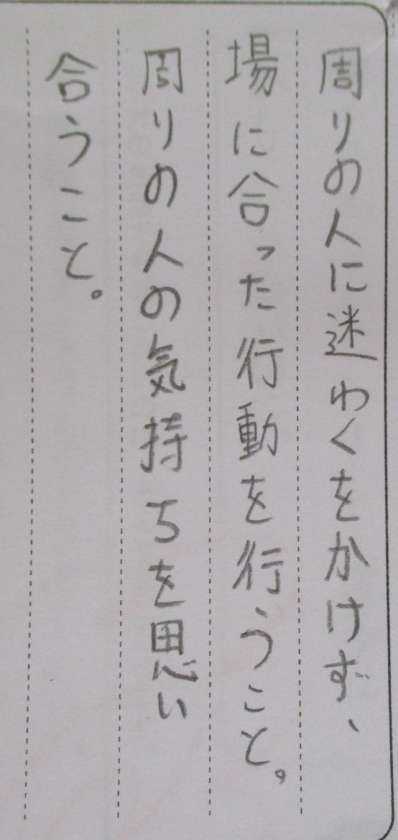 周りの人に迷わくをかけず、
場に合った行動を行うこと。
周りの人の気持ちを思い
合うこと。